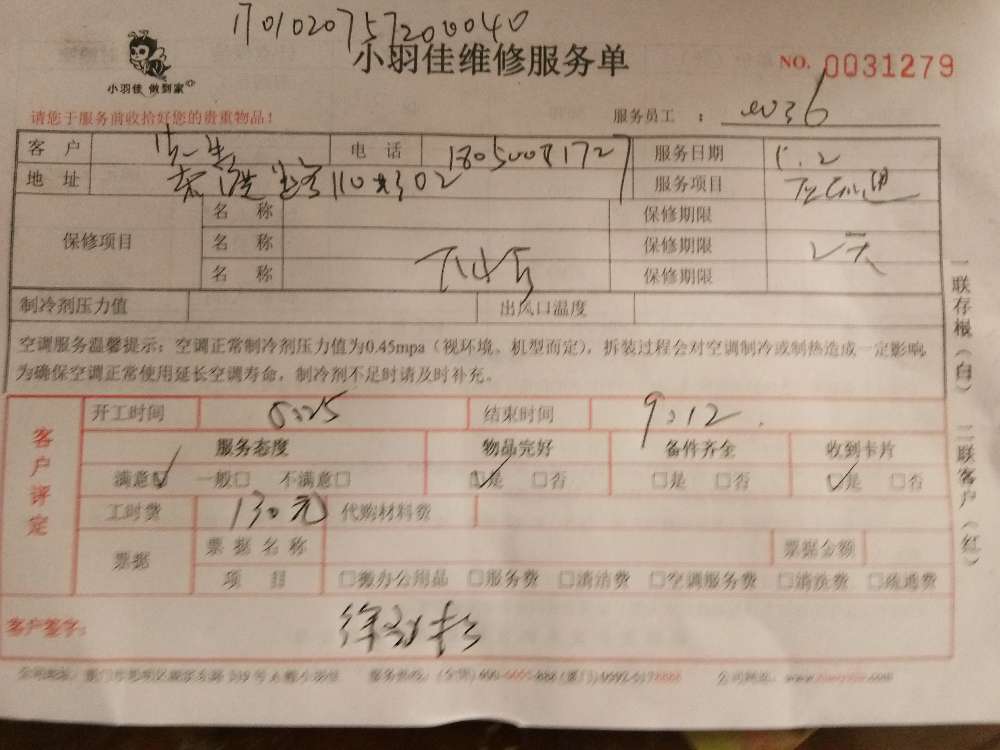 1701020757200040
小羽佳 做到家
小羽佳维修服务单
NO. 0031279
请您于服务前收拾好您的贵重物品！
服务员工 ：
客 户 电 话 服务日期
地 址 110 302 服务项目
保修项目
名 称 保修期限
名 称 保修期限 天
名 称 保修期限
制冷剂压力值 出风口温度
空调服务温馨提示：空调正常制冷剂压力值为0.45mpa（视环境、机型而定），拆装过程会对空调制冷或制热造成一定影响，
为确保空调正常使用延长空调寿命，制冷剂不足时请及时补充。
客户评定
开工时间 8:25 结束时间 9:12
服务态度 物品完好 备件齐全 收到卡片
满意☑ 一般□ 不满意□ ☑是 □否 □是 □否 ☑是 □否
工时费 130元 代购材料费
票据
票据名称 票据金额
项 目 □搬办公用品 □服务费 □清洁费 □空调服务费 □清洗费 □疏通费
客户签字：
一联存根（白） 二联客户（红）